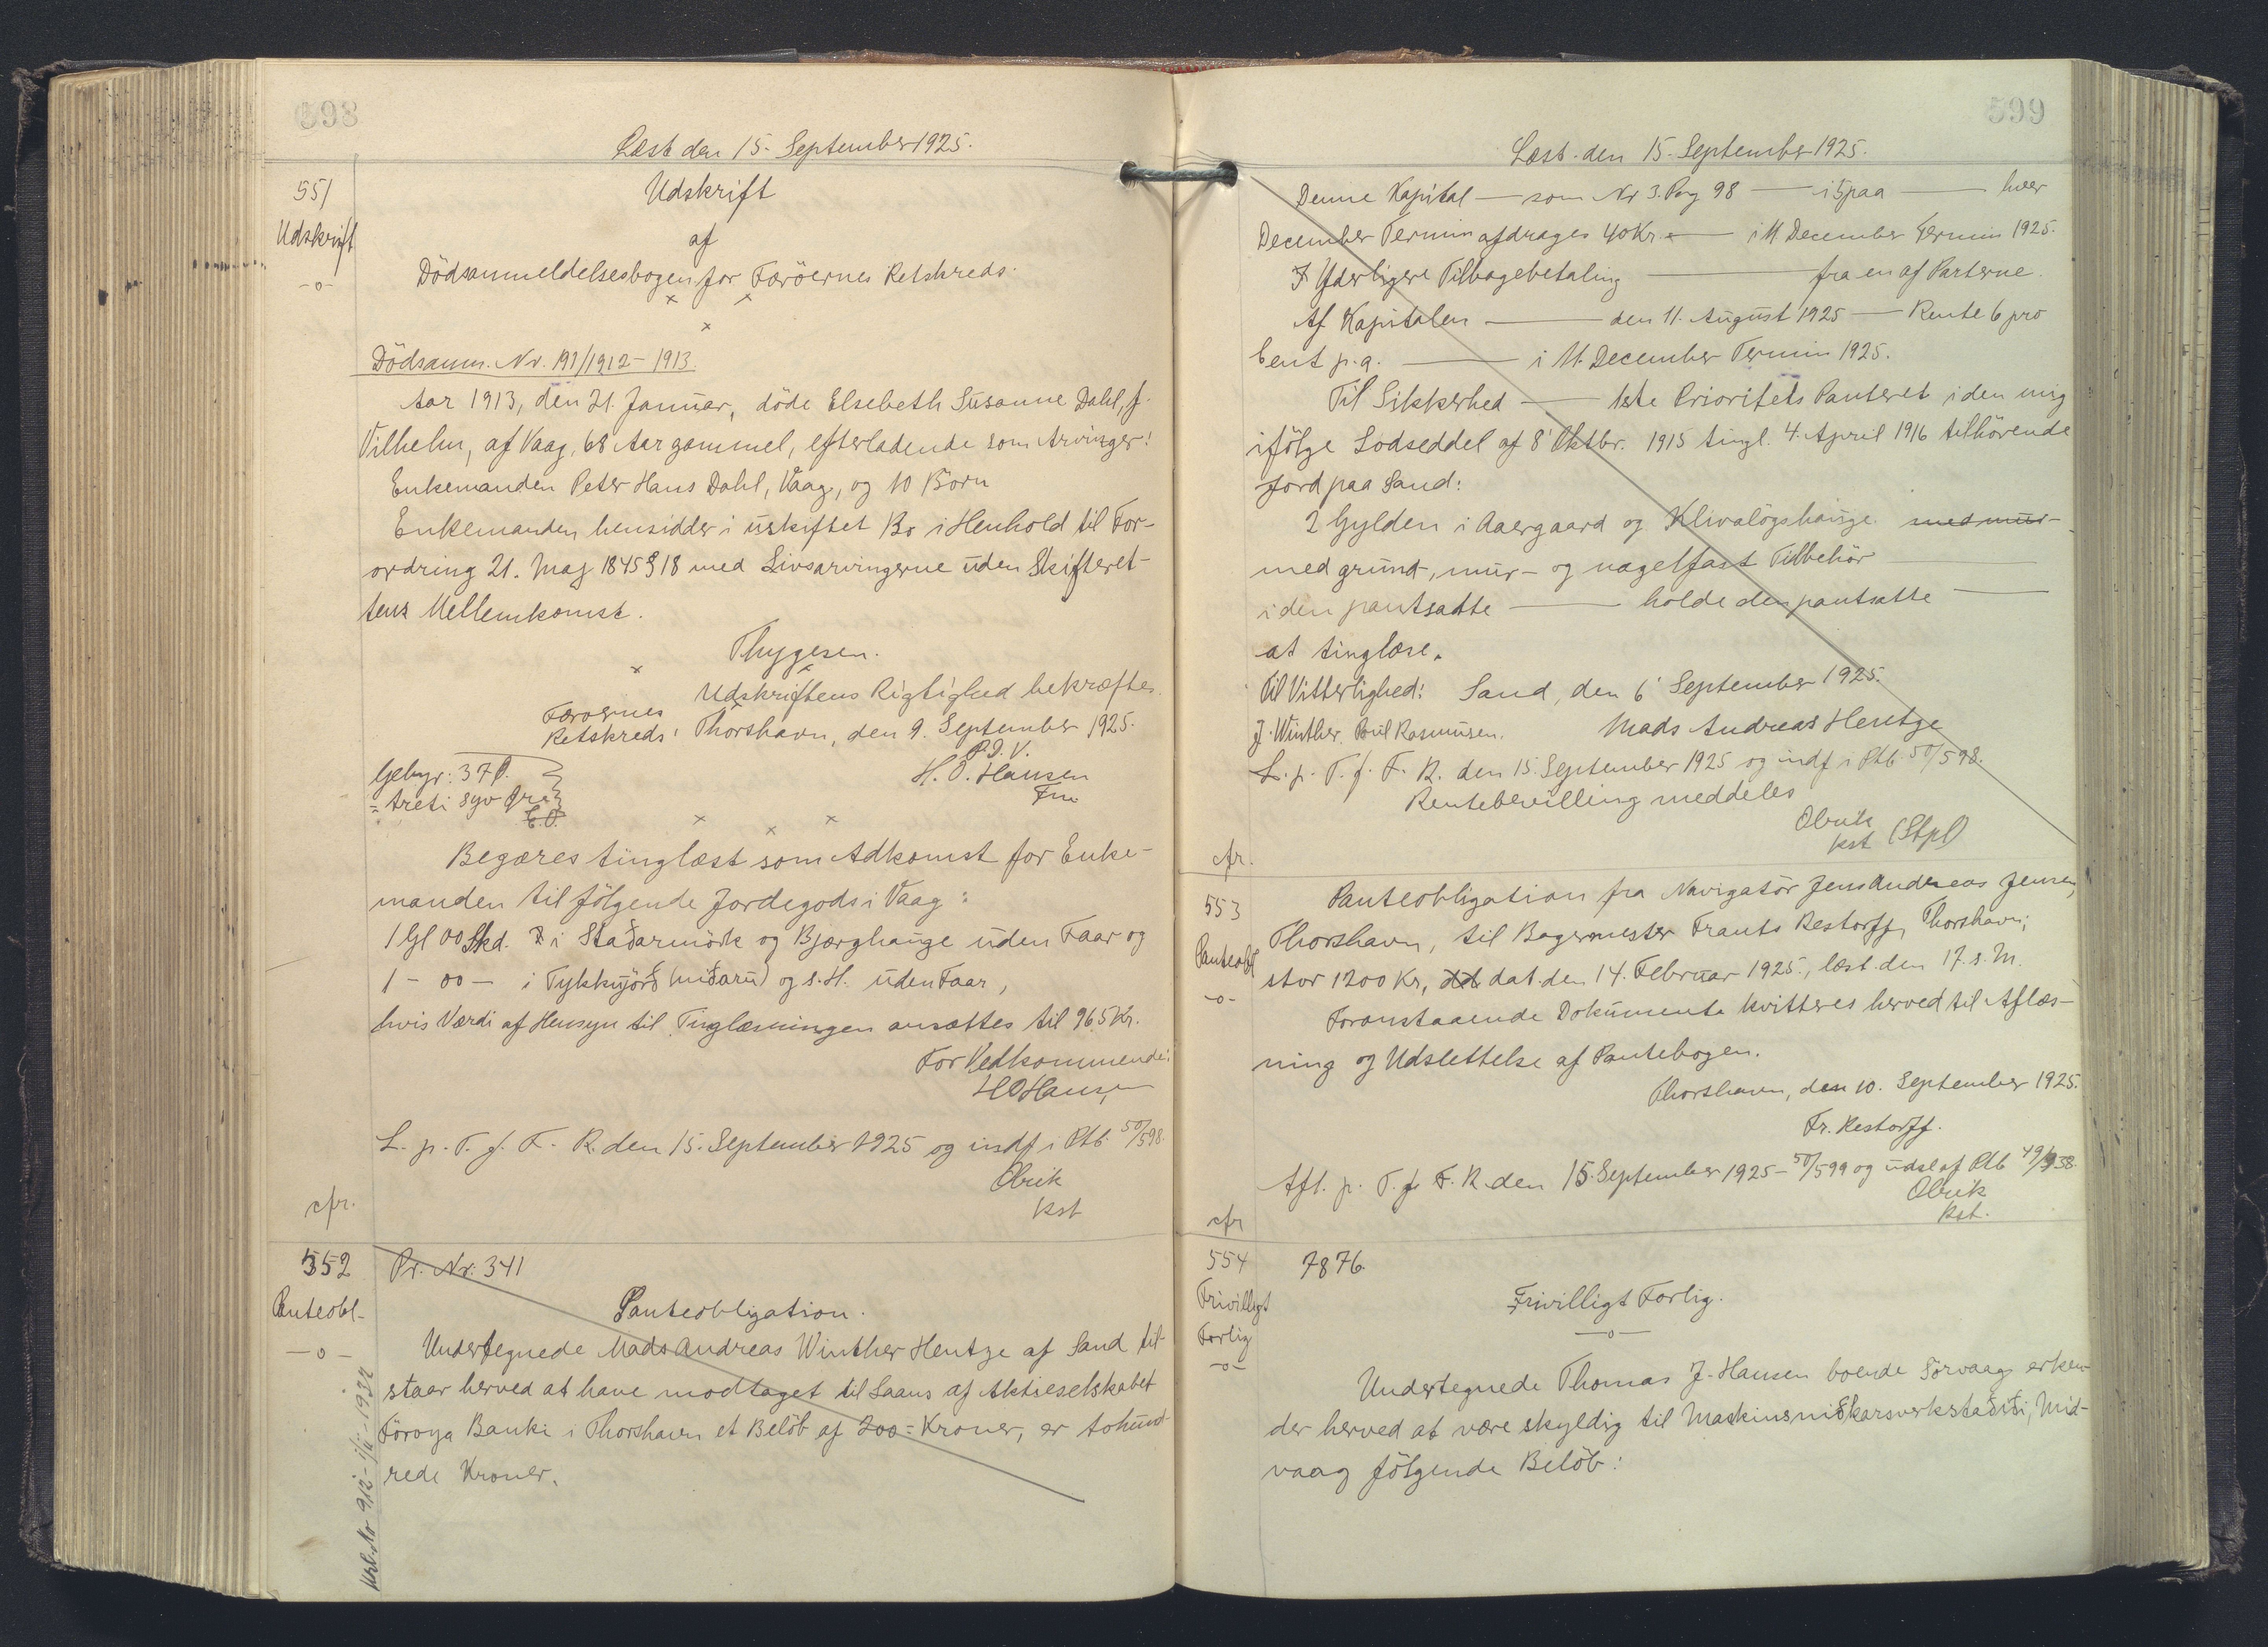 598
Læst den 15. September 1925.
551
Udskrift
-o-
Udskrift
af
Dödsanmeldelsesbogen for Færöernes Retskreds.
x x
x
Dödsanm. Nr. 191/1912-1913.
Aar 1913, den 21. Januar, döde Elsebeth Susanne Dahl, f.
Vilhelm, af Vaag, 68 Aar gammel, efterladende som Arvinger:
Enkemanden Peter Hans Dahl, Vaag, og 10 Börn
Enkemanden hensidder i uskiftet Bo i Henhold til For-
ordring 21. Maj 1845 § 18 med Livsarvingerne uden Skifteret-
tens Mellemkomst.
Thygesen.
x x x
Udskriftens Rigtighed bekræftes.
Færoernes
Retskreds, Thorshavn, den 9. September 1925.
P.D.V.
H. O. Hansen
Fm
Gebyr: 37 Ø.
= treti syv Øre
E.O.
x x x
Begæres tinglæst som Adkomst for Enke-
manden til fölgende Jordegods i Vaag:
1 Gl 00 Skd. i Staðarmörk og Bjærghauge uden Faar og
1 - 00 - i Tykkujörð (niðaru) og s. H. uden Faar,
hvis Værdi af Hensyn til Tinglæsningen ansættes til 965 Kr.
For Vedkommende:
H O Hansen
L. p. T. f. F. R. den 15. September 1925 og indf i Ptb. 50/598.
Olrik
kst
cfr.
552
Panteobl-
-o-
Pr. Nr. 341
Panteobligation.
Undertegnede Mads Andreas Winther Hentze af Sand til-
staar herved at have modtaget til Laans af Aktieselskabet
Föroya Banki i Thorshavn et Belöb af 200 = Kroner, er tohund-
rede Kroner.
599
Læst den 15. September 1925.
Denne Kapital — som Nr 3. Pag 98 — i 5paa — hver
December Termin afdrages 40 Kr. — i 11 December Termin 1925.
Yderligere Tilbagebetaling — fra en af Parterne.
Af Kapitalen — den 11. August 1925 — Rente 6 pro
Cent p.a. — i 11. December Termin 1925.
Til Sikkerhed — 1ste Prioritets Panteret i den mig
ifölge Lodseddel af 8' Oktbr. 1915 tingl. 4. April 1916 tilhörende
Jord paa Sand:
2 Gylden i Aaergaard og Klivalögshauge. med mur-
med grund-, mur- og nagelfast Tilbehör —
i den pantsatte — holde den pantsatte —
at tinglæse.
Til Vitterlighed: Sand, den 6' September 1925.
J. Winther. Poul Rasmussen. Mads Andreas Hentze
L. p. T. f. F. R. den 15. September 1925 og indf i Ptb. 50/598.
Rentebevilling meddeles
Olrik
kst (Stpl)
cfr.
553
Panteobl
-o-
Panteobligation fra Navigatör Jens Andreas Jensen,
Thorshavn, til Bagermester Frants Restorff, Thorshavn,
stor 1200 Kr, dat. den 14. Februar 1925, læst den 17. s. M.
Foranstaaende Dokumente kvitteres herved til Aflæs-
ning og Udslettelse af Pantebogen.
Thorshavn, den 10. September 1925.
Fr. Restorff.
Afl. p. T. f. F. R. den 15. September 1925 - 50/599 og udsl af Ptb 49/938.
Olrik
kst.
cfr
554
Frivilligt
Forlig
-o-
7876.
Frivilligt Forlig.
-o-
Undertegnede Thomas J. Hansen boende Sörvaag erken-
der herved at være skyldig til Maskinsmiðkarsverkstaðið i, Mid-
vaag fölgende Belöb: